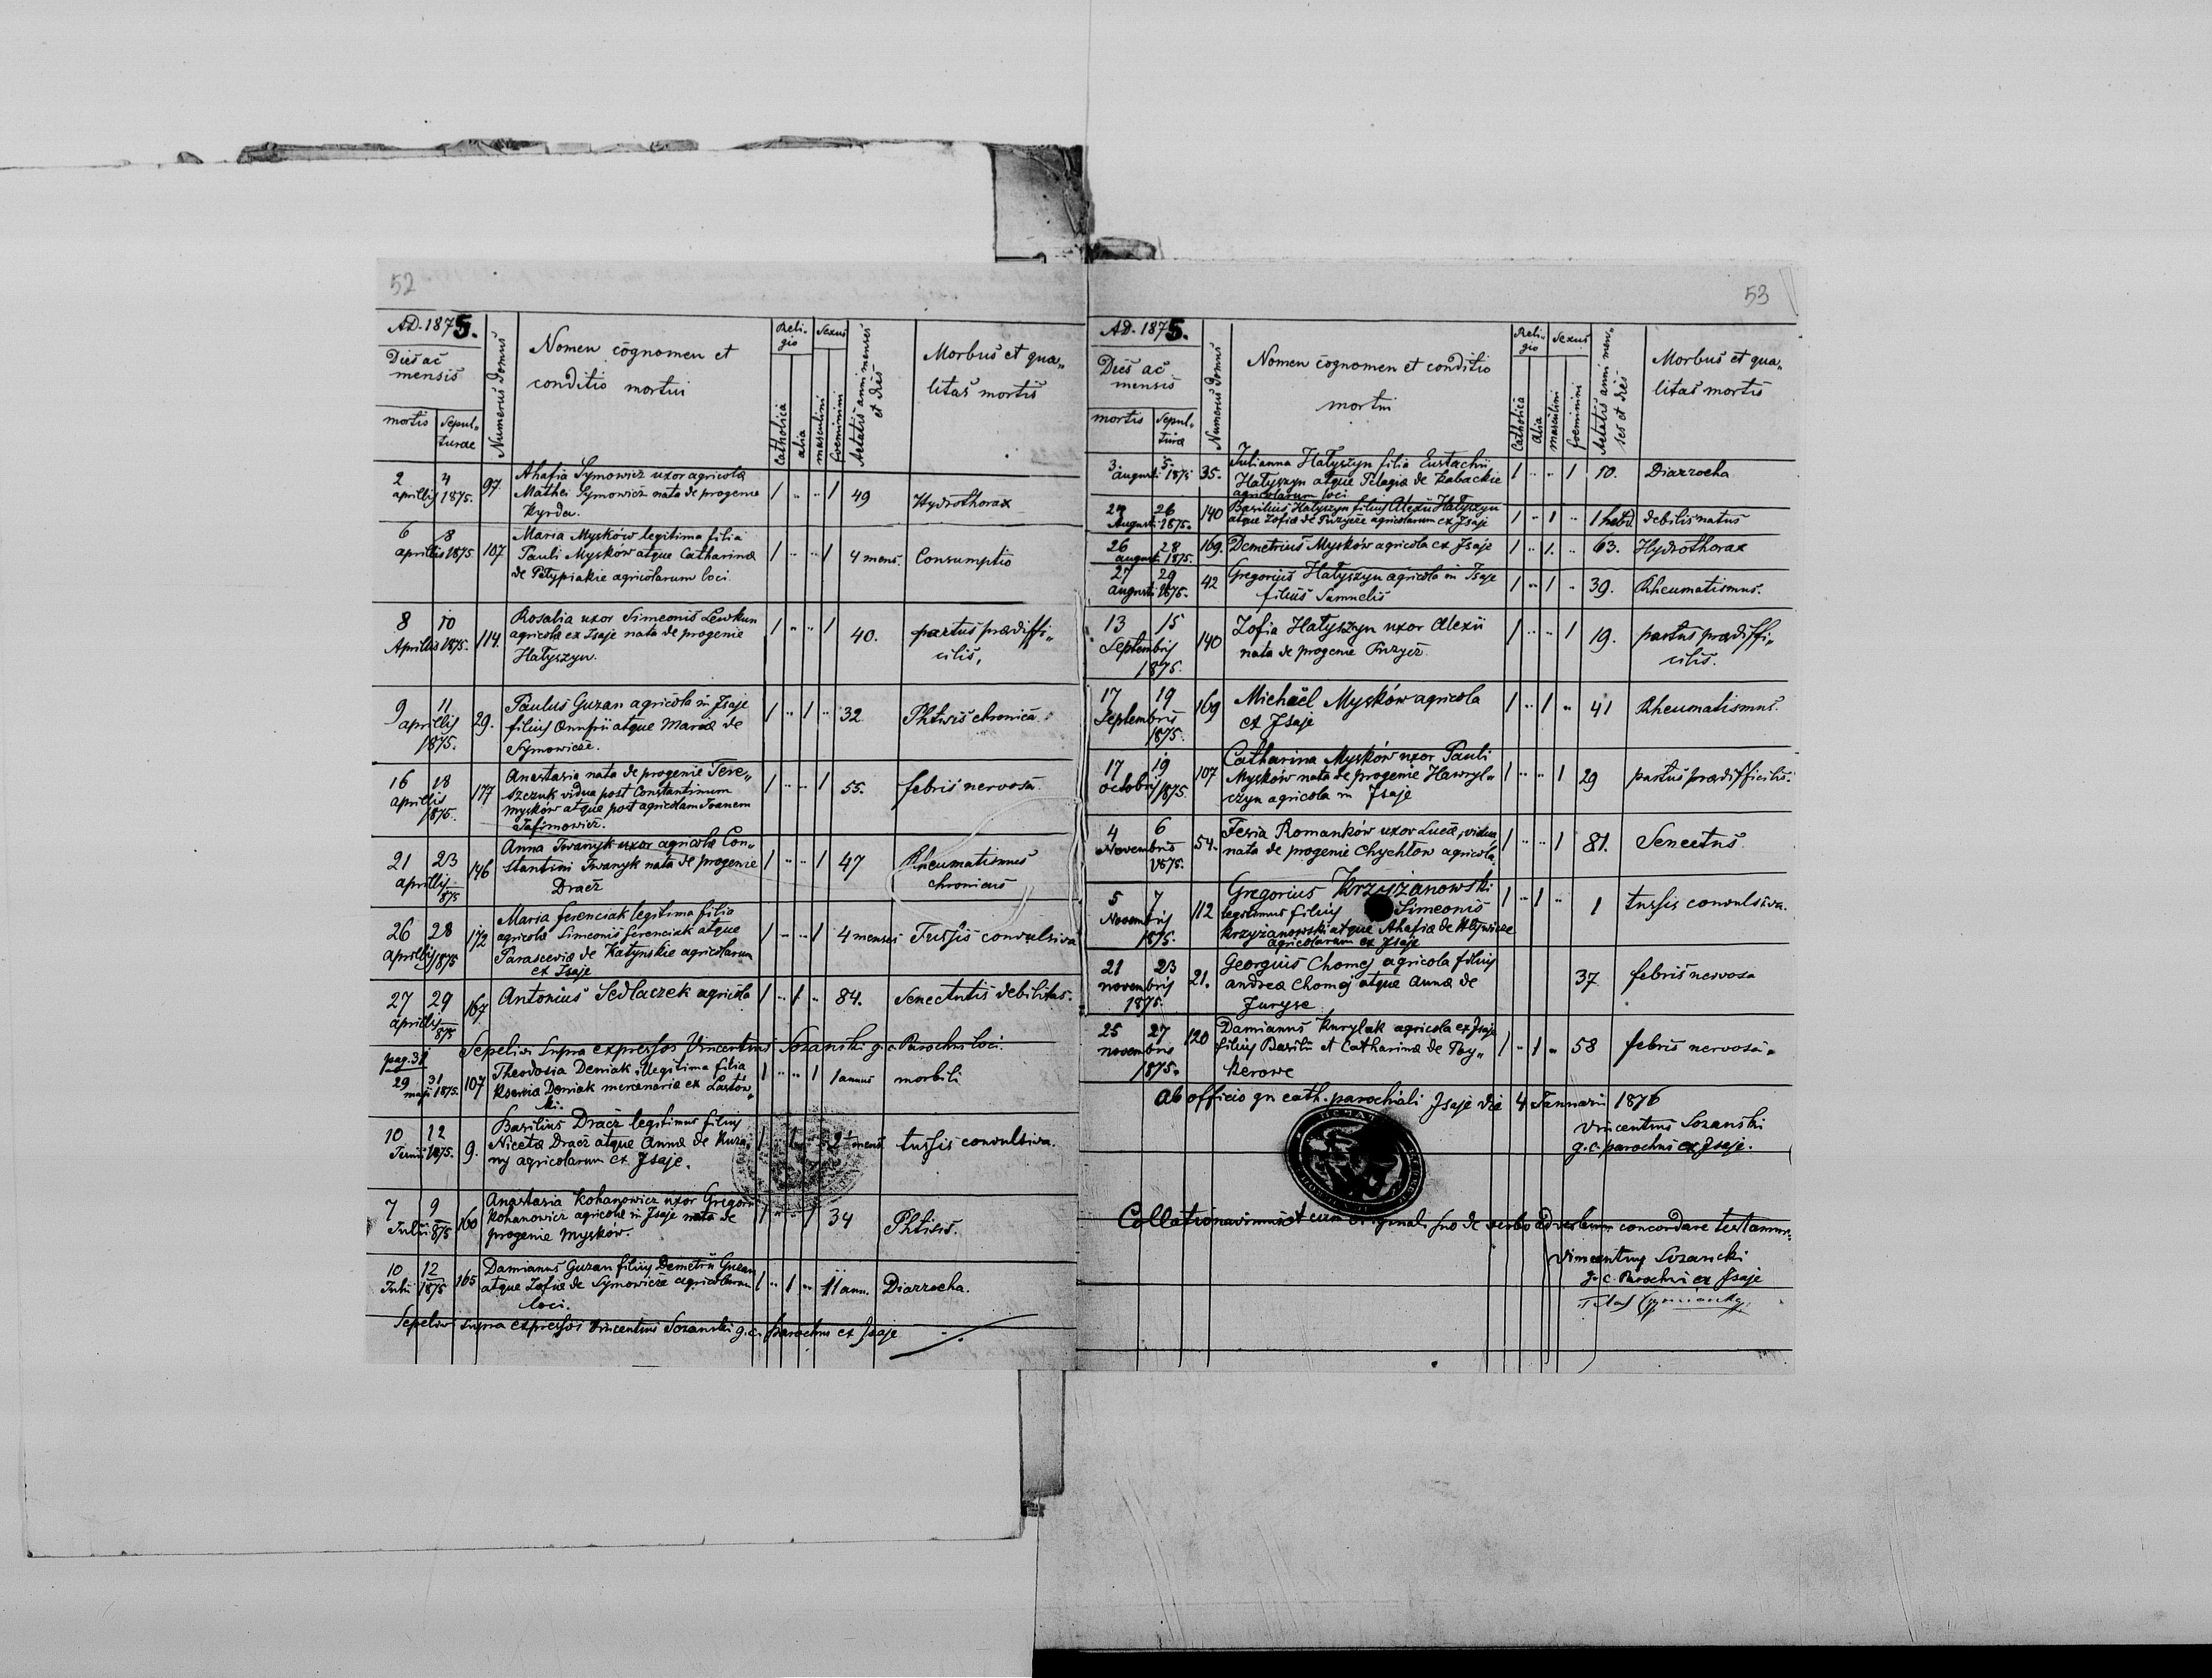 52
A.D. 1875.
Dies ac mensis
mortis
Sepulturae
Numerus domus
Nomen cognomen et
conditio mortui
Religio
Catholica
alia
Sexus
masculini
foeminini
Aetatis anni menses et dies
Morbus et qua„
litas mortis
2 4 97 Ahafia Symowicz uxor agricolae 1 .. .. 1 49 Hydrothorax
aprillis 1875. Mathei Symowicz nata de progenie
Kyrda.
6 8 107 Maria Mysków legitima filia 1 .. .. 1 4 mens. Consumptio
aprillis 1875. Pauli Mysków atque Catharinae
agricolarum loci
8 10 114. Rosalia uxor Simeonis Lewkun 1 .. .. 1 40. partus praediffi„
Aprillis 1875. agricolae ex Isaje nata de progenie cilis,
Hatyszyn.
9 11 29. Paulus Guzan agricola in Isaje 1 .. 1 .. 32 Phtisis chronica.
aprillis 1875. filius Onufrii atque Mariae de
Symowicze.
16 18 177 Anastasia nata de progenie Tere„ 1 .. .. 1 55. febris nervosa
aprillis 1875. szczuk vidua post Constantinum
Mysków atque post agricolam Joanem
21 23 146 Anna Iwanyk uxor agricolae Con„ 1 .. .. 1 47 Rheumatismus
aprillis 875 stantini Iwanyk nata de progenie chronicus
Dracz
26 28 172 Maria ferenciak legitima filia 1 .. .. 1 4 menses Tussis convulsiva
aprillis 1875 agricolae Simeonis ferenciak atque
Parasceviae de Katynskie agricolarum
ex Isaje
27 29 167 Antonius Sedlaczek agricola 1 .. 1 .. 84. Senectutis debilitas.
aprillis 875
Sepelivi supra expressos Vincentius Sozanski g.c. Parochus loci.
pag. 31
29 31 107 Theodosia Deniak illegitima filia 1 .. .. 1 1 annus morbili
maji 1875. Kseniae Deniak mercenariae ex Lastów„
ki.
10 12 9. Basilius Dracz legitimus filius 2 mens tussis convulsiva.
Junii 1875. Nicetae Dracz atque Annae de Kuza„
ny agricolarum ex Isaje.
7 9 160 Anastasia Kohanowicz uxor Gregorii 1 .. .. 1 34 Phtisis.
Julii 875 Kohanowicz agricolae in Isaje nata de
progenie Mysków.
10 12 165 Damianus Guzan filius Demetrii Guzan 1 .. 1 .. 11 ann. Diarrocha.
Julii 1875 atque Zofiae de Symowicze agricolarum
loci.
Sepelivi supra expressos Vincentius Sozanski g.c. parochus ex Isaje
53
A.D. 1875.
Dies ac
mensis
mortis
Sepulturae
Numerus domus
Nomen cognomen et conditio
mortui
Religio
Catholica
Alia
Sexus
masculini
foeminini
Aetatis anni menses et dies
Morbus et qua„
litas mortis
3. 5. 35. Julianna Hatyszyn filia Eustachii 1 .. .. 1 10. Diarrocha
augusti 1875 Hatyszyn atque Pelagiae de Kabackie
agricolarum loci
26 140 Basilius Hatyszyn filius Alexii Hatyszyn 1 .. 1 .. debilis natus
Augusti 1875. atque Zofiae de Puzycze agricolarum ex Isaje
26 28 169. Demetrius Mysków agricola ex Isaje 1 .. 1. .. 63. Hydrothorax
august 1875.
27 29 42 Gregorius Hatyszyn agricola in Isaje 1 .. 1 .. 39. Rheumatismus.
augusti 1875. filius Samuelis
13 15 140 Zofia Hatyszyn uxor Alexii 1 .. .. 1 19. partus praediffi„
Septembris 1875. nata de progenie Puzycz cilis.
17 19 169 Michaël Mysków agricola 1 .. 1 .. 41 Rheumatismus.
Septembris 1875. ex Isaje
17 19 107 Catharina Mysków uxor Pauli 1 .. .. 1 29 partus praedifficilis.
octobris 1875. Mysków nata de progenie Hawryl„
czyn agricola in Isaje
4 6 54. Fesia Romanków uxor Lucae, vidua 1 .. .. 1 81. Senectus
Novembris 1875. nata de progenie Chychłow agricola.
5 7 112 Gregorius Krzyżanowski 1 .. 1 .. 1 tussis convulsiva.
Novembris 1875. legitimus filius Simeonis
Krzyżanowski atque Ahafiae de
agricolarum ex Isaje
21 23 21. Georgius Chomej agricola filius 37 febris nervosa
novembris 1875. andreae Chomej atque Annae de
Juryse
25 27 120 Damianus Kurylak agricola ex Isaje 1 .. 1 .. 58 febris nervosa.
novembris 1875. filius Basilii et Catharinae de Pay„
kerowe
Ab officio gr cath. parochiali Isaje die 4 Januarii 1876
Vincentius Sozanski
g.c. parochus ex Isaje.
Collationavimus et cum originali suo de verbo ad verbum concordare testamur.
Vincentius Sozanski
g.c. Parochus ex Isaje